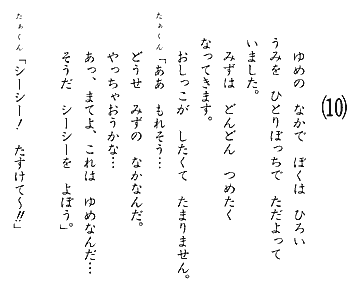 (10)
ゆめの なかで ぼくは ひろい
うみを ひとりぼっちで ただよって
いました。
みずは どんどん つめたく
なってきます。
おしっこが したくて たまりません。
たぁくん「ああ もれそう…
どうせ みずの なかなんだ。
やっちゃおうかな…
あっ、まてよ、これは ゆめなんだ…
そうだ シーシーを よぼう」。
たぁくん「シーシー! たすけて〜!!」